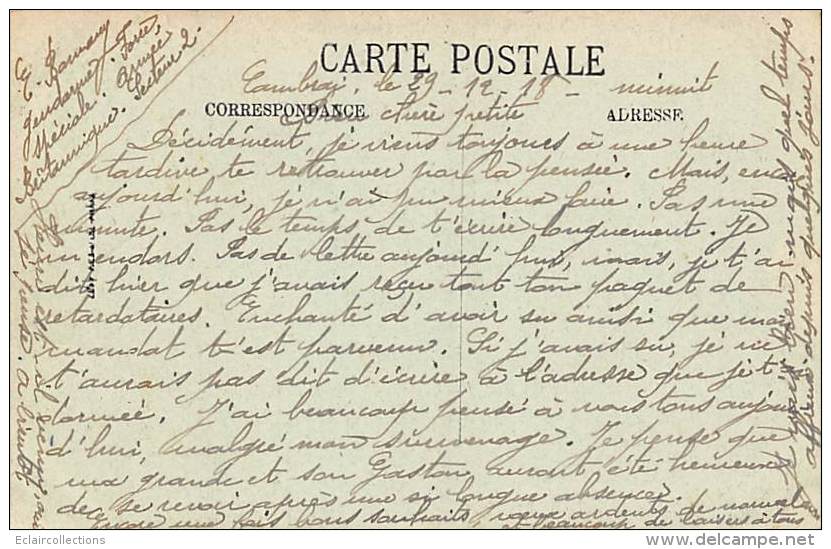 CARTE POSTALE
Cambrai, le 29-12-18 - minuit
CORRESPONDANCE ADRESSE
chère petite
Décidément, je viens toujours à une heure
tardive te retrouver par la pensée. Mais, encore
aujourd'hui, je n'ai pu mieux faire. Pas une
minute. Pas le temps de t'écrire longuement. Je
m'endors. Pas de lettre aujourd'hui, mais, je t'ai
dit hier que j'avais reçu tout ton paquet de
retardataires. Enchanté d'avoir su aussi que mon
mandat t'est parvenu. Si j'avais su, je ne
t'aurais pas dit d'écrire à l'adresse que je t'ai
donnée. J'ai beaucoup pensé à vous tous aujour
d'hui, malgré mon surmenage. Je pense que
ma grande et son Gaston auront été heureux
de se revoir après une si longue absence.
Encore une fois bons souhaits, voeux ardents de nouvel an
et beaucoup de baisers à tous
quel temps
affreux depuis quelques jours.
E.
gendarmerie. Force
spéciale. Armée
Britannique. Secteur 2.
Eclaircollections
delcampe.net